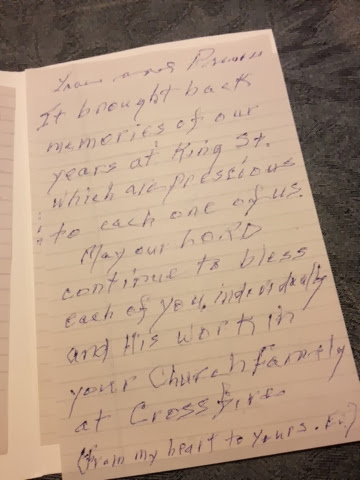 It brought back
memories of our
years at King St.
which are pressious
to each one of us.
May our LORD
continue to bless
each of you, individually
and His work in
your Church family
at Crossfire
(from my heart to yours.